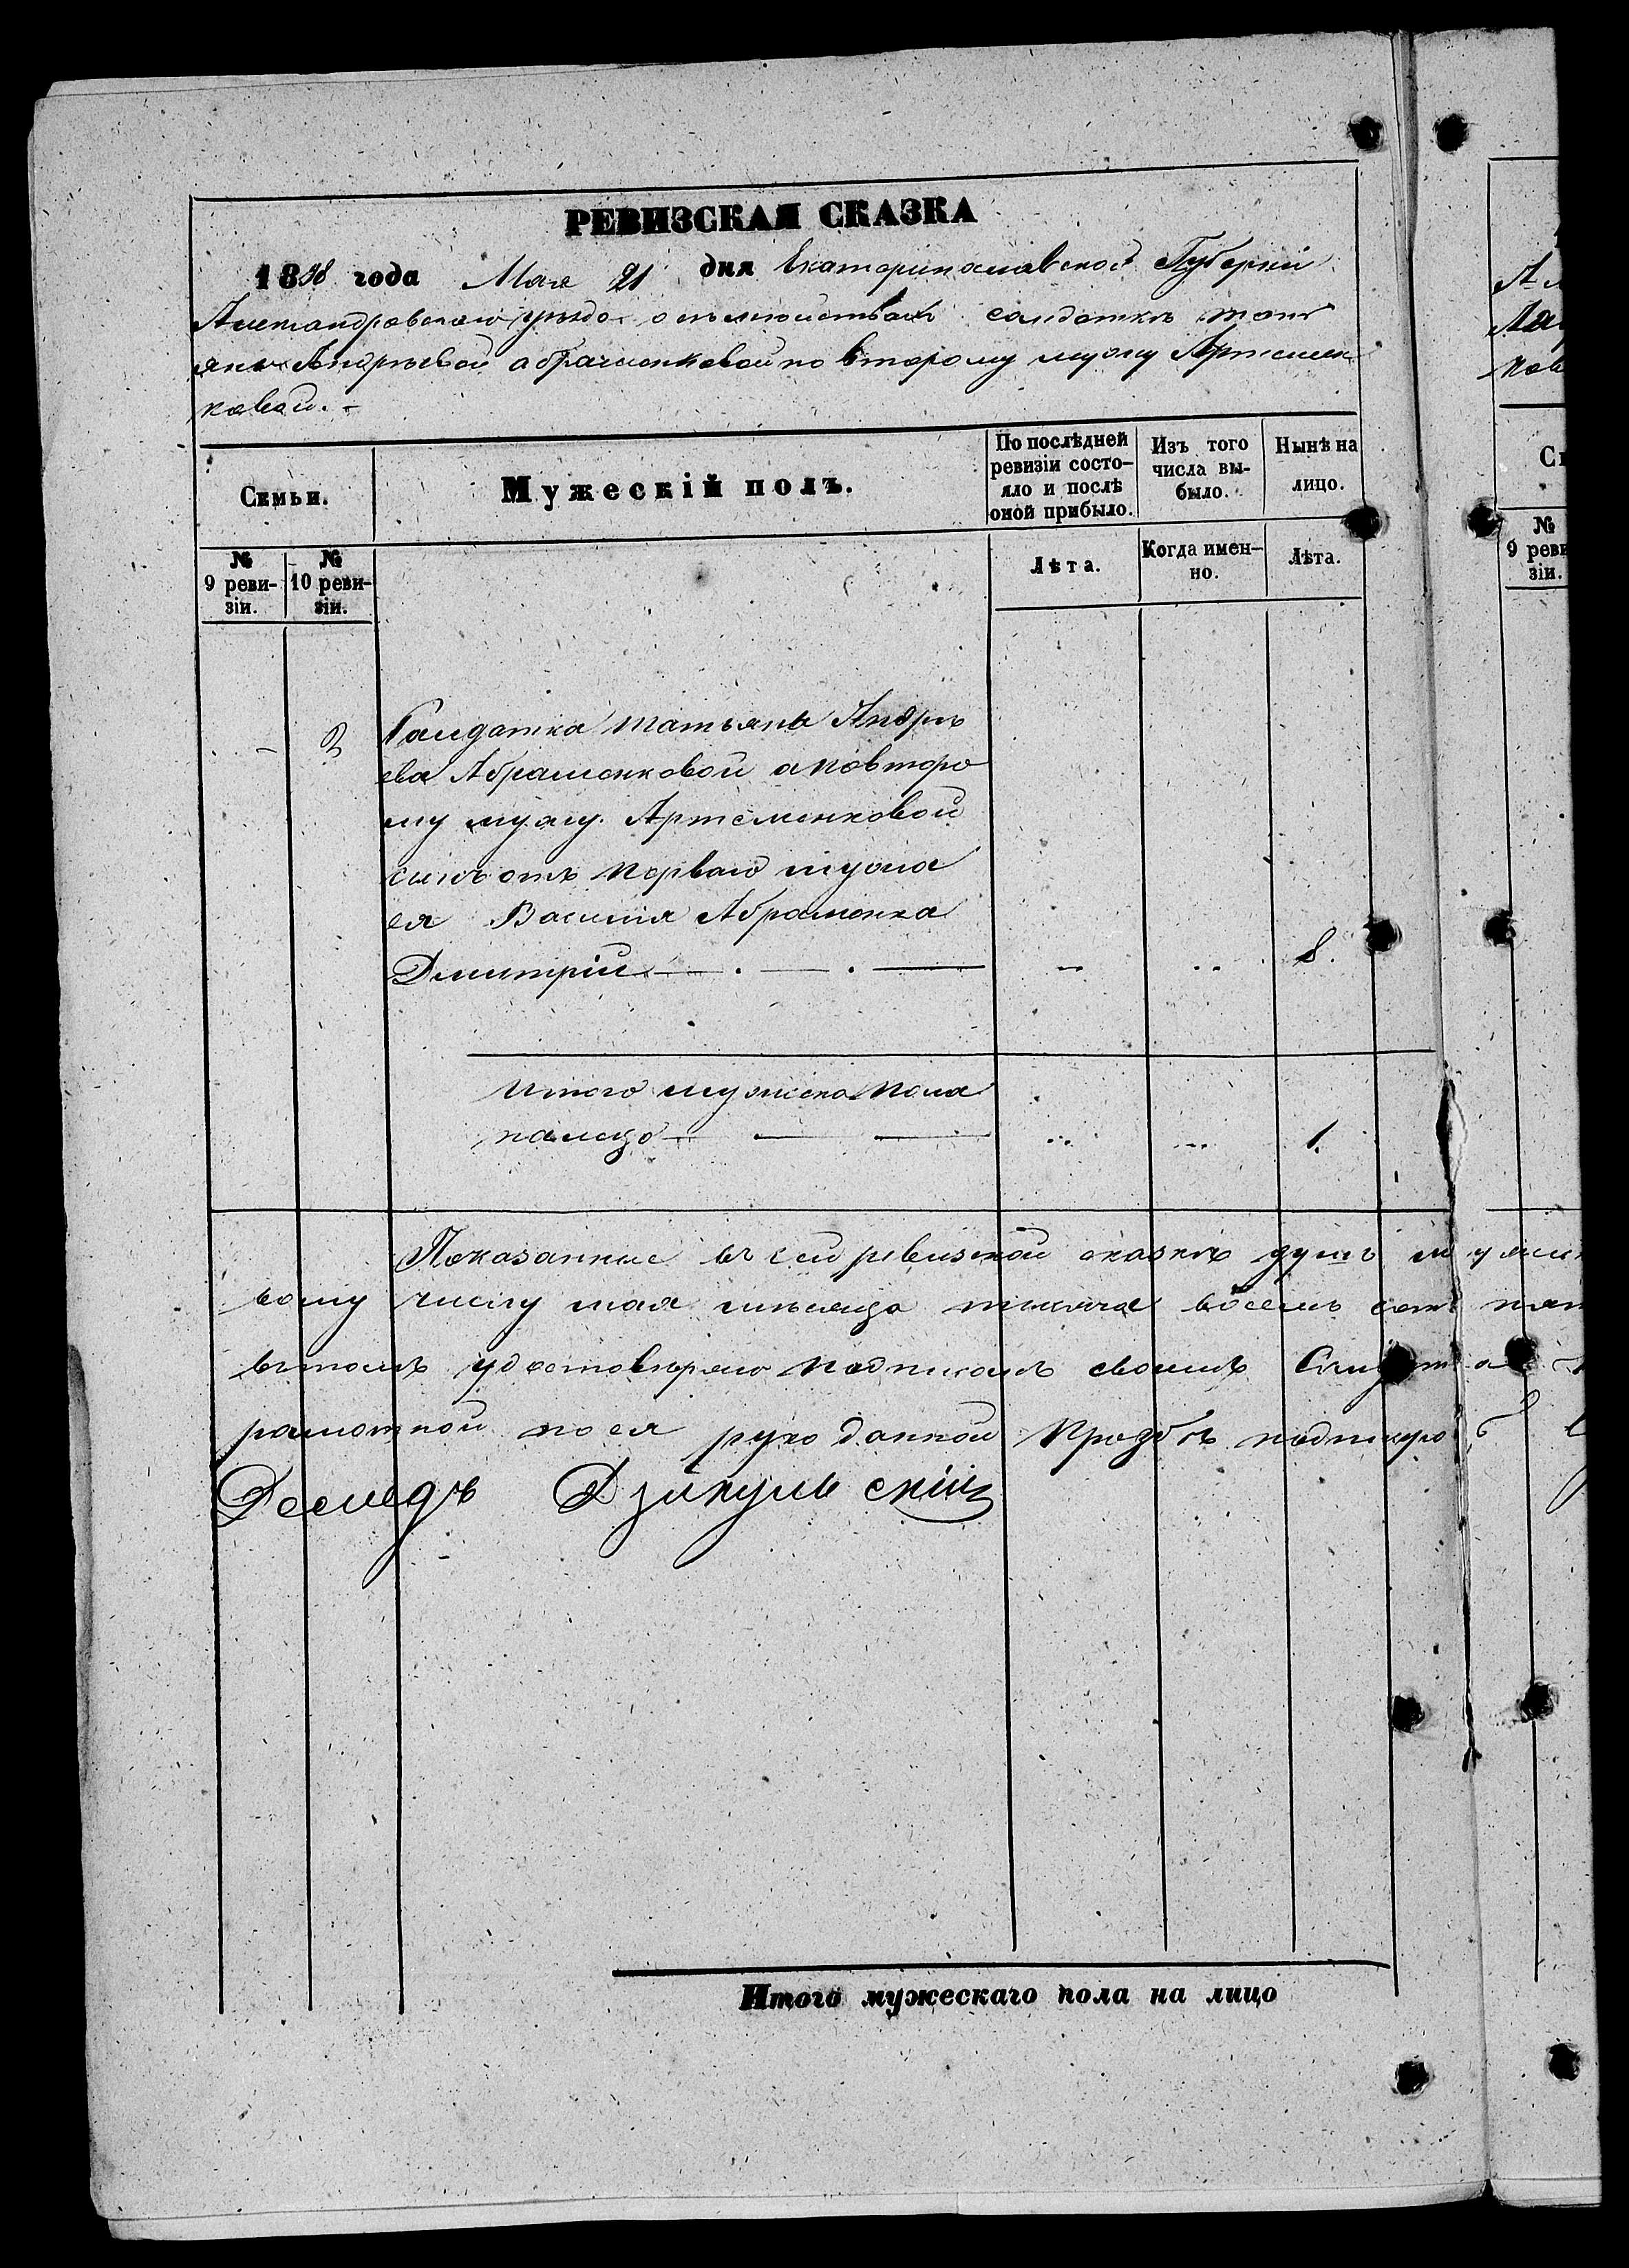 РЕВИЗСКАЯ СКАЗКА
1858 года Мая 21 дня Екатеринославской Губернiи
Александровского уезда о солдатке тать
яне Андрѣевой абраменковой по второму мужу Артемен
ковой. –
Семьи.
Мужескій полъ.
По послѣдней ревизіи состо- яло и послѣ оной прибыло.
Изъ того числа вы- было.
Нынѣ на лицо.
№ 9 реви- зіи.
№ 10 реви- зіи.
Лѣта.
Когда имен- но.
Лѣта.
– Солдатка татьяны Андрѣ
ева Абраменковой а повторо
му мужу Артеменковой
сынъ отъ перваго мужа
ея Василия Абраменка
Дмитрій 8.
Итого мужска пола
налицо 1.
Показанные въ сей ревизкой сказкѣ душъ
вому числу мая мѣсяца тысяча восемь сотъ
втомъ удостовѣряю подписомъ своимъ
рамотной по ея руко данной прозбѣ подписую
Итого мужескаго пола на лицо
Сем
№ 9 реви зіи.